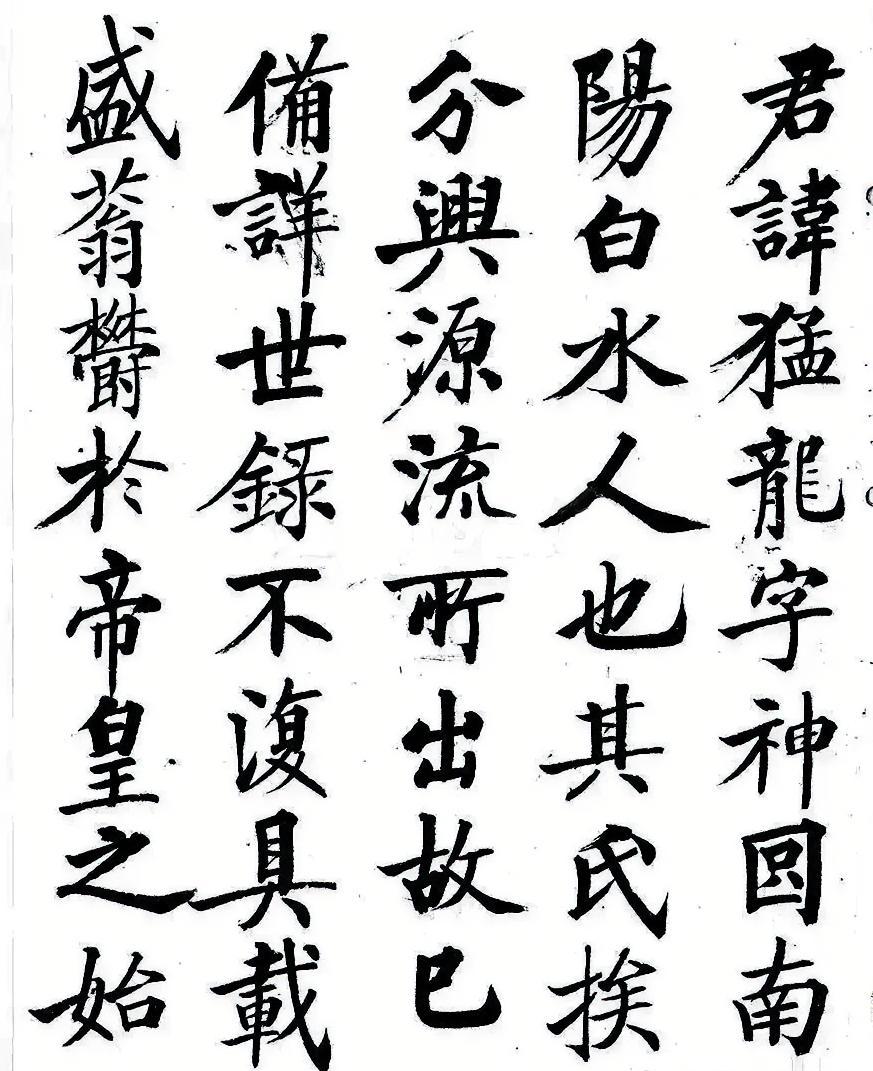 君諱猛龍字神囧南
陽白水人也其氏挨
分興源流所出故已
備詳世錄不復具載
盛蓊欝於帝皇之始